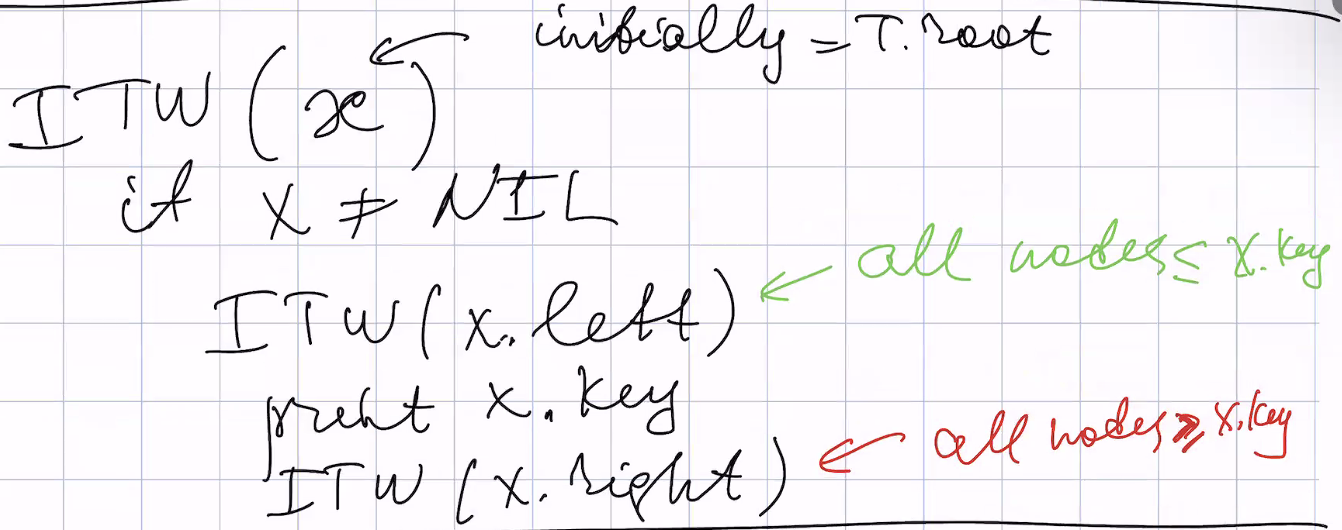 initially = T.root
ITW (x)
if x ≠ NIL
ITW (x.left)
all nodes ≤ x.key
print x.key
ITW (x.right)
all nodes ≥ x.key